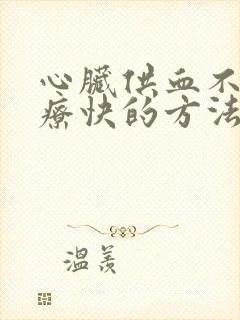 心臟供血不
療快的方法
溫羨